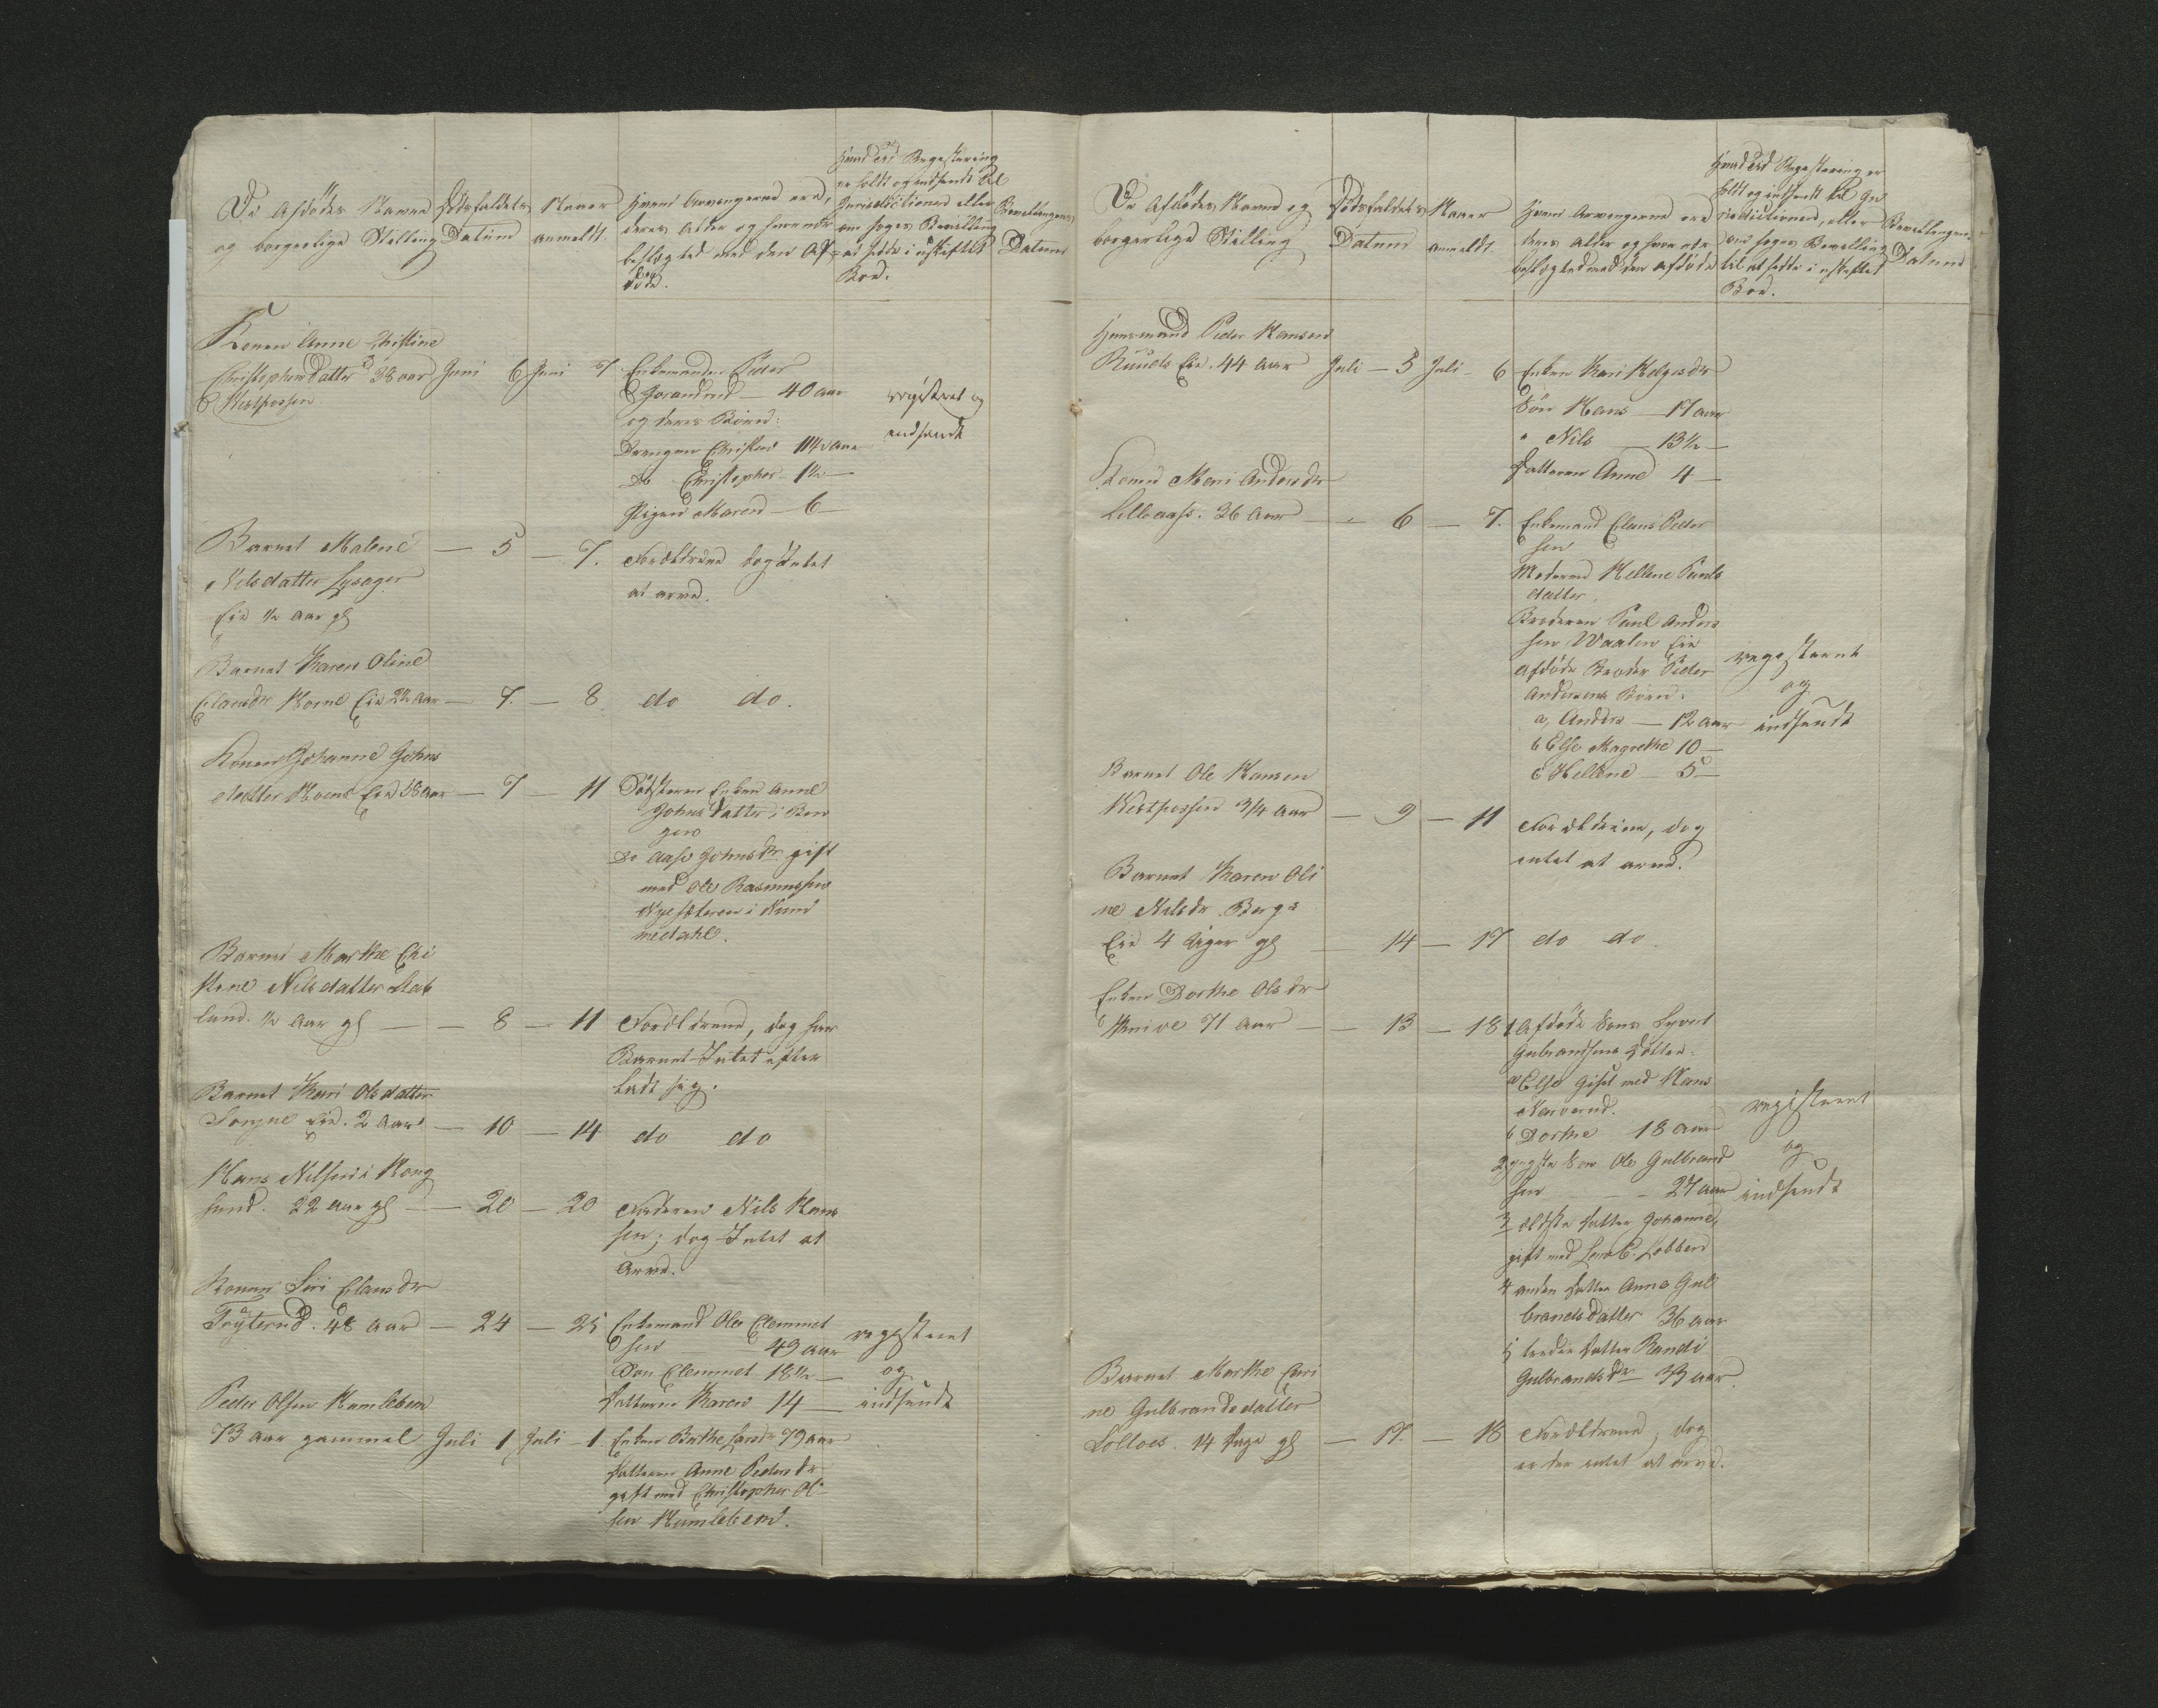 De Afdödes Navne
og borgerlige Stilling
Dödsfaldets
Datum
Naar
anmeldt.
Hvem Arvingerne ere,
deres Alter og hvor nær
beslægted med den Af-
döde.
Hvad Registering
er holdt og indsendt til
Jurisdictionen eller
om söges Bevilling
at sidde i uskiftet
Boe.
Bevillingens
Datum
Konen Anne Kistine
Christophersdatter 38 aar Juni 6 Juni 7
Vestfossen
Enkemanden Peder
40 aar
og deres Börn:
Drengen Christen 11½ aar
Do Christopher - 1½ —
Pigen Maren — 6 —
registeret og
indsendt
Barnet Malene — 5 — 7.
Nilsdatter
Eie ½ Aar gl
Forældrene dog Intet
at arve.
Barnet Karen Oline
Clausdr Horne Eie 2½ Aar — 7. — 8 do do.
Konen Johanne Johns
datter Eie 58 aar — 7 — 11
Södsteren Enken Anne
Johns Datter i Ber
gen
Do Aase Johnsdr. gift
med Ole Rasmussen
i Num
medahl.
Barnet Marthe Chi
stine Nilsdatter Stab
lund. ½ Aar gl — — 8 — 11
Forældrene, dog har
Barnet Intet efter
ladt sig.
Barnet Kari Olsdatter
Eie. 2 Aar — 10 — 14 do do
Hans Nilsen i Kong
sund. 22 aar gl — — 20 — 20
Faderen Nils Hans
sen; dog Intet at
Arve.
Konen Siri Clausdr
48 Aar — 24 — 25
Enkemand Ole Clemmet
sen — 49 aar
Sön Clemmet 18½ —
Datteren Karen 14 —
registeret
og
indsendt
Peder Olsen Hamlebem
73 aar gammel Juli 1 Juli - 1
Enken Berthe 79 aar
Datteren Anne Pedersdr
gift med Christopher Ol-
sen Hamlebem.
De Afdödes Navne og
borgerlige Stilling
Dödsfaldets
Datum
Naar
anmeldt.
Hvem Arvingerne ere
deres Alter og hvor nær
beslægted med den afdöde
Hvad Registering er
holdt og indsendt til Ju
risdictionen, eller
om söges Bevilling
til at sidde i uskiftet
Boe.
Bevillingens
Datum
Huusmand Peder Hansen
Ruuds Eie. 44 Aar Juli — 5 Juli - 6
Enken Kari Helgesdr
Sön Hans — 17 aar
" Nils — 13½ —
Datteren Anne 4 —
Konen Mari Andersdr
Lilleaass. 36 Aar — " 6 — 7.
Enkemand Claus Peder
sen
Moderen Hellene Pauls
datter.
Broderen Paul Anders
sen Waalen Eie
Afdöde Broder Peder
Andersens Börn:
a, Anders — 12 aar
b Else Magrethe 10 —
c Hellene — 5 —
registeret
og
indsendt
Barnet Ole Hansen
Vestfossen 3/4 Aar — 9 — 11
Forældrene, dog
intet at arve.
Barnet Karen Oli
ne Nilsdr. Bergs
Eie 4 Uger gl — 14 — 17 do do.
Enken Dorthe Olsdr
Knive 71 Aar — — 13 — 18
1 Afdöde Söns Syvert
Gulbrandsens Dötter:
a Else Gift med Hans
b Dorthe 18 Aar
2 yngste Sön Ole Gulbrand
sen — — 27 aar
3 ældste Datter Johanne,
gift med Lobben
4 anden Datter Anne Gul
brandsdatter 36 aar
5 tredie Datter Randi
Gulbrandsdr 33 aar.
registeret
og
indsendt
Barnet Marthe Cari
ne Gulbrandsdatter
Lolloes. 14 Dage gl — 17. — 18
Forældrene; dog
er der intet at arve.